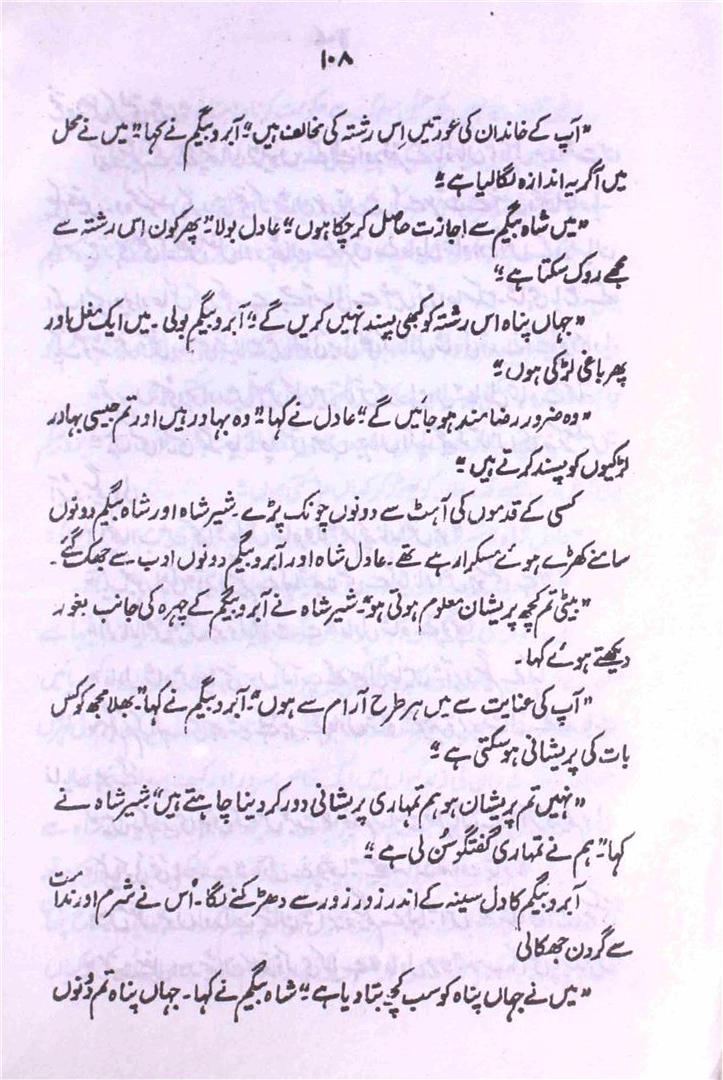 ۱۰۸
"آپ کے خاندان کی عورتیں اِس رشتہ کی مخالف ہیں" آبرو بیگم نے کہا "میں نے محل
میں آکر یہ اندازہ لگالیا ہے"
"میں شاہ بیگم سے اجازت حاصل کر چکا ہوں" عادل بولا "پھر کون اِس رشتہ سے
مجھے روک سکتا ہے"
"جہاں پناہ اس رشتہ کو کبھی پسند نہیں کریں گے" آبرو بیگم بولی ۔ میں ایک مغل اور
پھر باغی لڑکی ہوں"
"وہ ضرور رضامند ہوجائیں گے" عادل نے کہا "وہ بہادر ہیں اور تم جیسی بہادر
لڑکیوں کو پسند کرتے ہیں"
کسی کے قدموں کی آہٹ سے دونوں چونک پڑے ۔ شیر شاہ اور شاہ بیگم دونوں
سامنے کھڑے ہوئے مسکرا رہے تھے ۔ عادل شاہ اور آبرو بیگم دونوں ادب سے جھک گئے ۔
"بیٹی تم کچھ پریشان معلوم ہوتی ہو" شیر شاہ نے آبرو بیگم کے چہرہ کی جانب بغور
دیکھتے ہوئے کہا ۔
"آپ کی عنایت سے میں ہر طرح آرام سے ہوں" آبرو بیگم نے کہا "بھلا مجھ کو کس
بات کی پریشانی ہوسکتی ہے"
"نہیں تم پریشان ہو ہم تمہاری پریشانی دور کردینا چاہتے ہیں" شیر شاہ نے
کہا "ہم نے تمہاری گفتگو سُن لی ہے"
آبرو بیگم کا دل سینہ کے اندر زور زور سے دھڑکنے لگا ۔ اُس نے شرم اور ندامت
سے گردن جھکالی
"میں نے جہاں پناہ کو سب کچھ بتا دیا ہے" شاہ بیگم نے کہا ۔ جہاں پناہ تم دُونوں